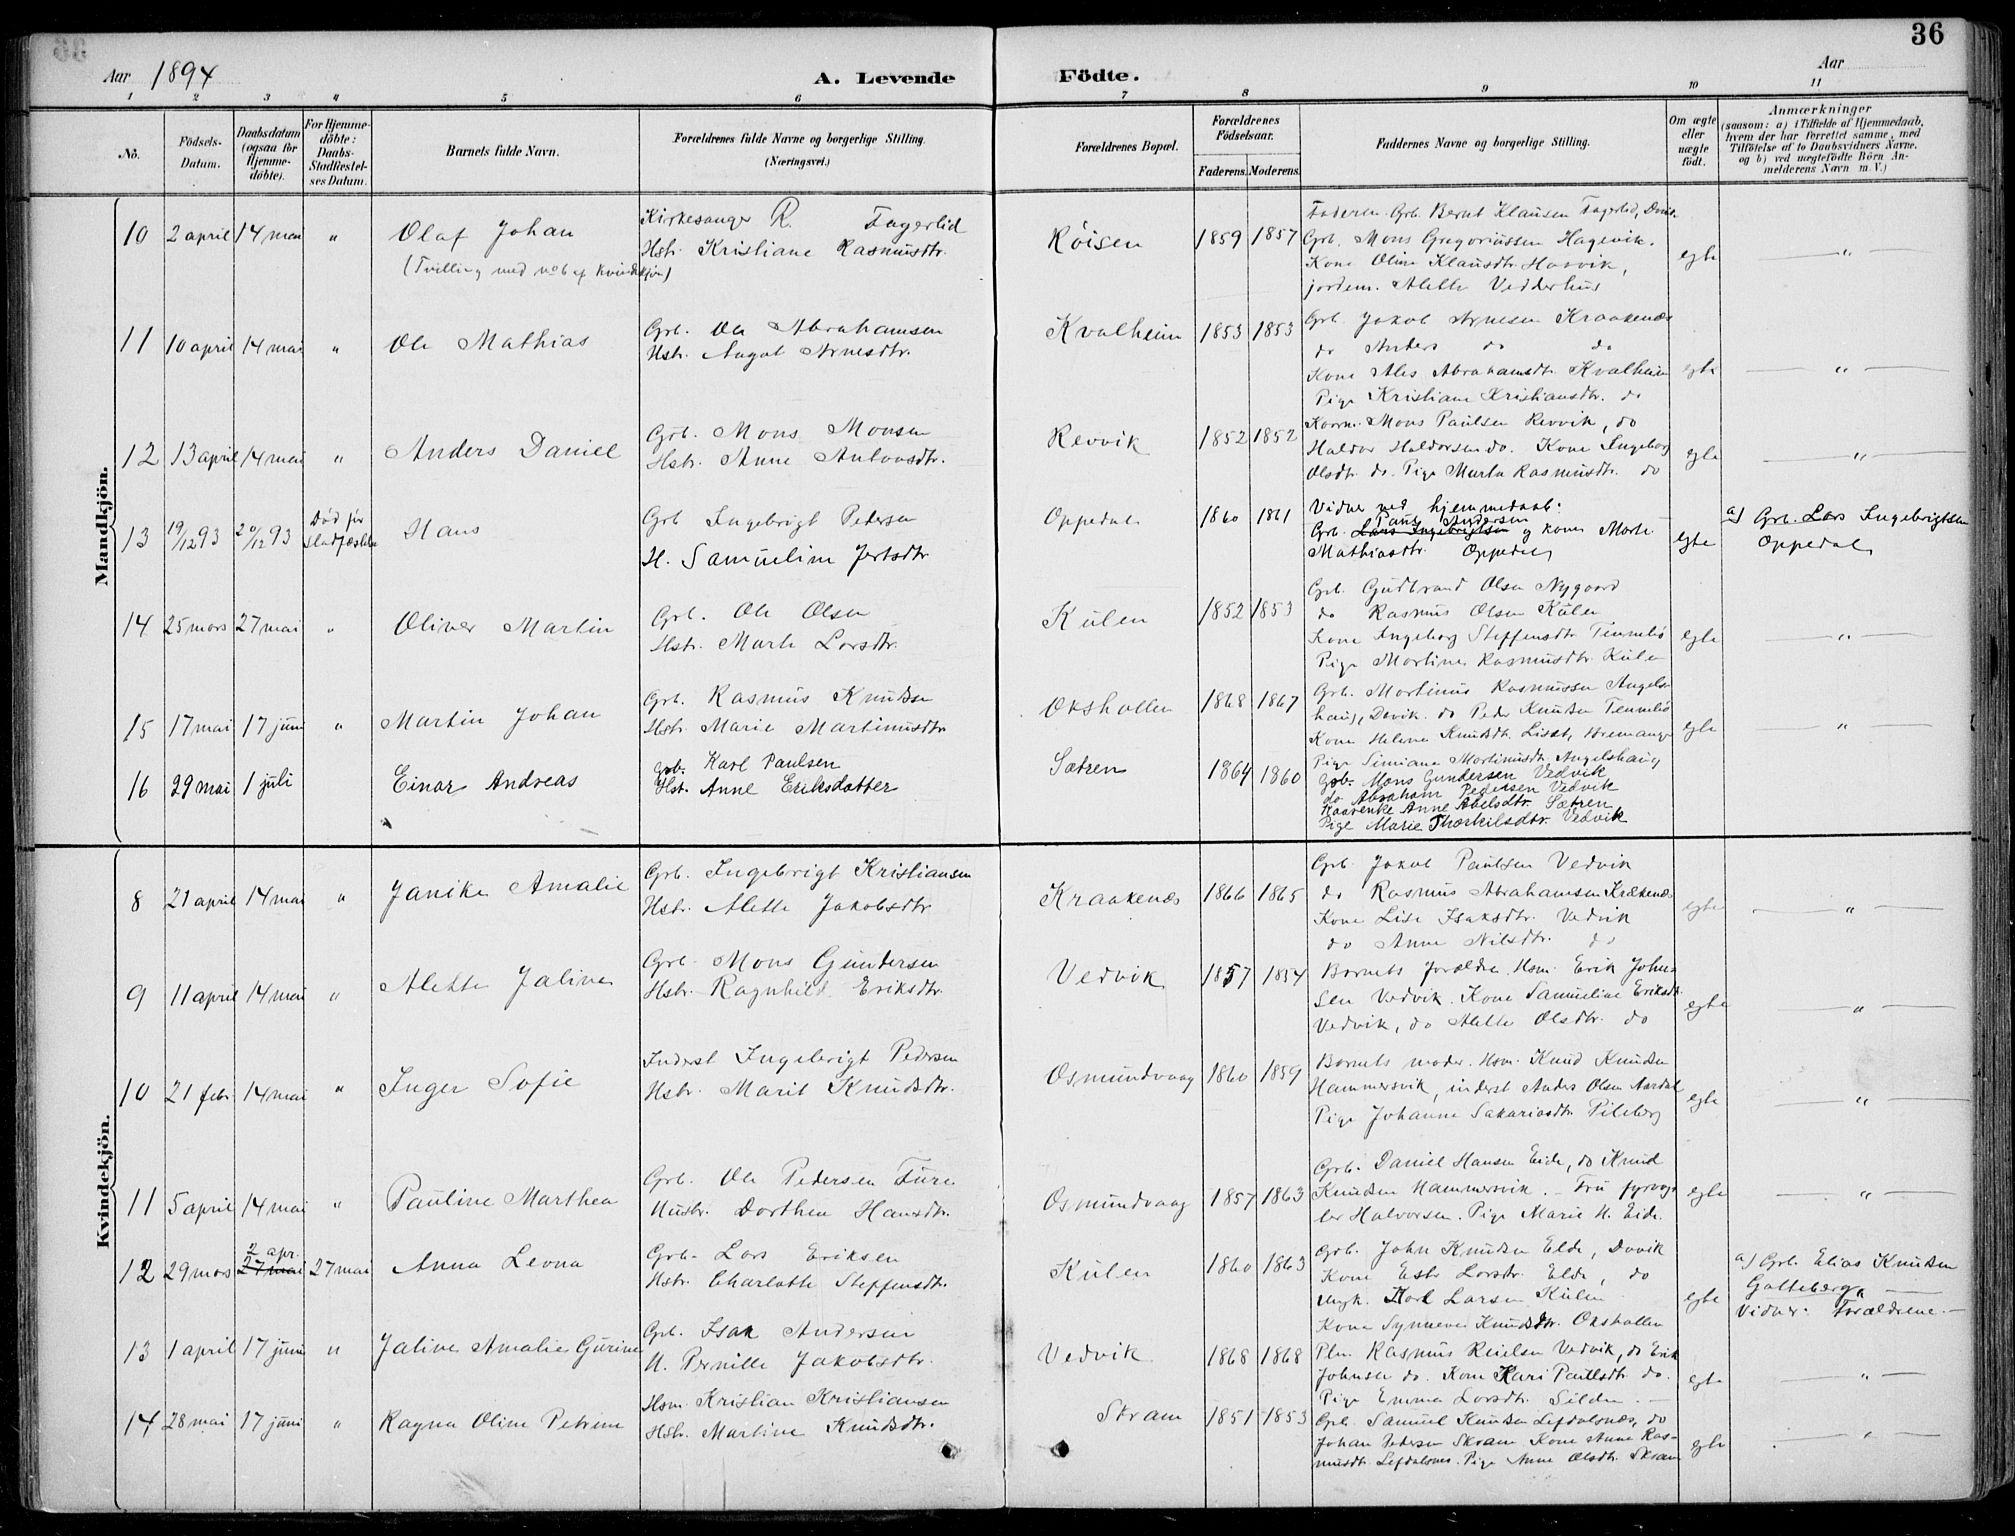 36
Aar 1894
A. Levende Födte.
Aar
1 2 3 4 5 6 7 8 9 10 11
No.
Födsels-Datum.
Daabsdatum (ogsaa for Hjemme-döbte).
For Hjemme-döbte: Daabs-Stadfæstel-ses Datum.
Barnets fulde Navn.
Forældrenes fulde Navne og borgerlige Stilling.
(Næringsvei.)
Forældrenes Bopæl.
Forældrenes Födselsaar.
Faderens. Moderens.
Faddernes Navne og borgerlige Stilling.
Om ægte eller uægte födt.
Anmærkninger
(saasom: a) i Tilfælde af Hjemmedaab,
hvem der har forrettet samme, med
Tilföielse af to Daabsvidners Navne,
og b) ved uægtefödte Börn An-
melderens Navn m. V.)
Mandkjön.
10 2 april 14 mai " Olaf Johan
(Tvilling med no 6 af kvindekjön)
Kirkesanger R. Fagerlid
Hstr. Kristiane Rasmusdtr.
Röisen 1859 1857
Faderen. Grb. Bernt Klausen Fagerlid,
Grb. Mons Gregoriussen Hagevik.
Kone Oline Klausdtr.
jordem. Alette Vedderhus
egte "
11 10 april 14 mai " Ole Mathias
Grb. Ole Abrahamsen
Hstr. Aagot Arnesdtr.
Kvalheim 1853 1853
Grb. Jakob Arnesen Kraakenæs
do Anders do do
Kone Ales Abrahamsdtr. Kvalheim
Pige Kristiane Kristiansdtr. do
egte "
12 13 april 14 mai " Anders Daniel
Grb. Mons Monsen
Hstr. Anne Antonsdtr.
Revvik 1852 1852
Mons Paulsen Revvik, do
Haldor Haldorsen do. Kone Ingeborg
Olsdtr. do. Pige Marta Rasmusdtr. do
egte "
13 19/12 93 20/12 93 Död för Stadfæstelse Hans
Grb Ingebrigt Pedersen
H. Samueline
Oppedal 1860 1861
Vidner ved hjemmedaab:
Andersen
Grb. Lars Ingebrigtsen og kone Marte
Mathiasdtr. Oppedal
egte
a) Grb. Lars Ingebrigtsen
Oppedal
14 25 mars 27 mai " Oliver Martin
Grb. Ole Olsen
Hstr. Marte Larsdtr.
Kulen 1852 1853
Grb. Gudbrand Olsen Nygaard
do Rasmus Olsen Kulen
Kone Ingeborg Steffensdtr Tennebö
Pige Martine Rasmusdtr. Kulen
egte "
15 17 mai 17 juni " Martin Johan
Grb. Rasmus Knudsen
Hstr. Marie Martinusdtr
Oksholen 1868 1867
Grb. Martinus Rasmussen Angels-
haug, Davik. do Peder Knudsen Tennebö
Kone Helene Knudsdtr. Bremanger
Pige Simiane Martinusdtr. Angelshaug
egte "
16 29 mai 1 juli Einar Andreas
grb. Karl Paulsen
Hst. Anne Eriksdatter
Sætren 1864 1860
Grb. Mons Gundersen Vedvik
do Abraham Pedersen Vedvik
Kaarenke Anne Abelsdtr. Sætren
Pige Marie Thorkilsdtr. Vedvik
Kvindekjön.
8 21 april 14 mai " Janike Amalie
Grb. Ingebrigt Kristiansen
Hstr. Alette Jakobsdtr
Kraakenæs 1866 1865
Grb. Jakob Paulsen Vedvik
do Rasmus Abrahamsen Krækenæs
Kone Lise Isaksdtr. Vedvik
do Anne Nilsdtr. do
egte "
9 11 april 14 mai " Alette Jaline
Grb. Mons Gundersen
Hstr. Ragnhild Eriksdtr.
Vedvik 1857 1854
Barnets forældre. Hsm. Erik Johan-
sen Vedvik. Kone Samueline Eriksdtr.
Vedvik, do Alette Olsdtr. do
egte "
10 21 febr. 14 mai " Inger Sofie
Inderst Ingebrigt Pedersen
Hstr. Marit Knudsdtr.
Osmundvaag 1860 1859
Barnets moder. Hsm. Knud Knudsen
Hammersvik, inderst Anders Olsen Aardal
Pige Johanne Sakariasdtr. Pileberg
egte "
11 5 april 14 mai " Pauline Marthea
Grb. Ole Pedersen Fure
Hustr. Dorthea Hansdtr.
Osmundvaag 1857 1863
Grb. Daniel Hansen Eide, do Knud
Knudsen Hammersvik. - Fru fyrvog-
ter Halvorsen. Pige Marie H. Eide.
egte "
12 29 mars 2 apr. 27 mai 27 mai Anna Leona
Grb. Lars Eriksen
Hstr. Charlotte Steffensdtr.
Kulen 1860 1863
Grb. John Knudsen Elde, Davik
Kone Larsdtr. Elde, do
Ungk. Karl Larsen Kulen
Kone Synneve Knudsdtr. Oksholen
egte
a) Grb. Elias Knudsen
Gotteberg
Vidner: Forældrene.
13 1 april 17 juni " Jaline Amalie Gurine
Grb. Isak Andersen
H. Pernille Jakobsdtr.
Vedvik 1868 1868
Rasmus Vedvik, do Erik
Johnsen do. Kone Kari Paulsdtr do.
Pige Emma Larsdtr. Silden. -
egte "
14 28 mai 17 juni " Ragna Oline Petrine
Hsm. Kristian Kristiansen
Hstr. Martine Knudsdtr.
Skram 1851 1853
Grb. Samuel Knudsen Lefdalsnæs, do
Johan Pedersen Skram Kone Anne Ras-
musdtr. Lefdalsnes. Pige Anne Olsdtr. Skram
egte "